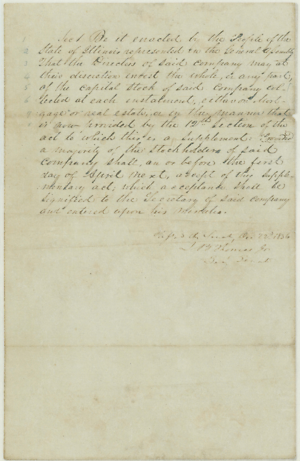 Sec 1 Be it enacted by the People of the
State of Illinois represented in the General Assembly
That the Directors of said company may at
their discretion invest the whole, or any part
of the Capital Stock of said Company col-
lected at each instalment, either in Mort-
gage or real estate, or in the manner that
is now provided by the 12th Section of the
act to which this is a Supplement. Provided
a majority of the Stockholders of said
company shall, on or before the first
day of April next, accept of this supple-
mentary act, which acceptance shall be
signified to the Secretary of said company
and entered upon his Books.